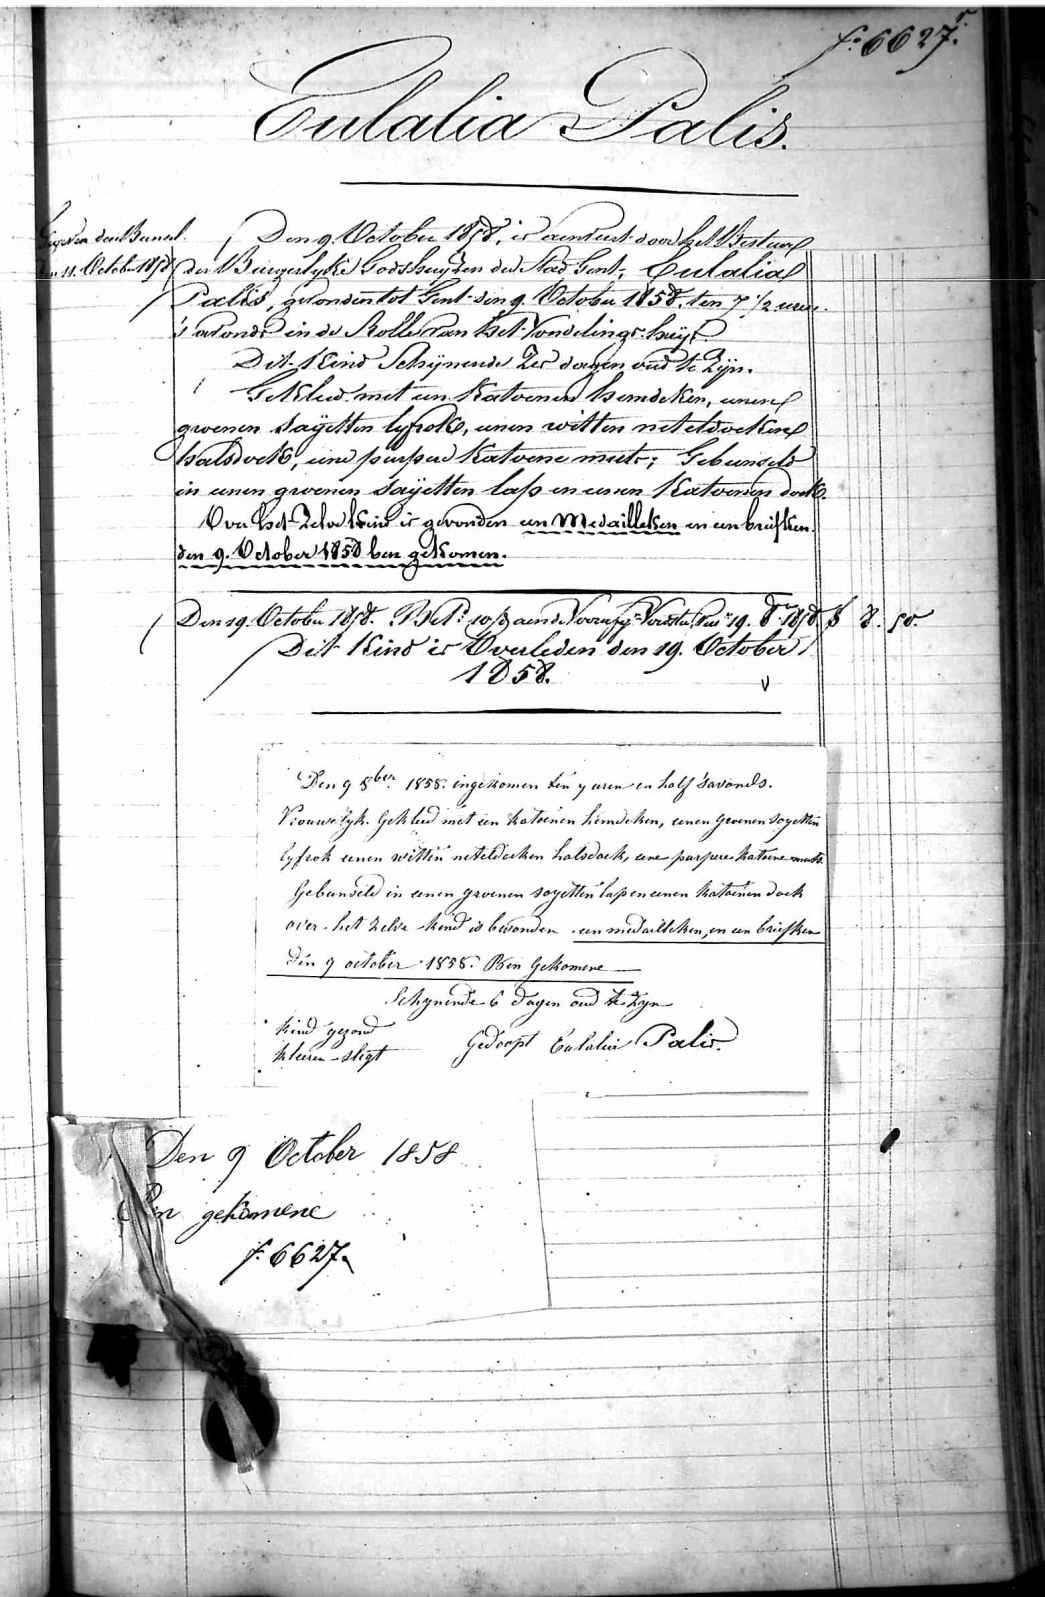 f.º 6627.
Eulalia Palis.
den Bureel.
11. October 1858
Den 9. October 1858, is aenveerd door het Bestuur
der Burgerlyke Godshuyzen der Stad Gent, Eulalia
Palis, gevonden tot Gent den 9. October 1858. ten 7 1/2 uren
's avonds in de Rolle van het Vondelings-huys.
Dit Kind Schynende Zes dagen oud te Zyn.
Gekleed met een Katoenen hemdeken, eenen
groenen Sayetten lyfrok, eenen witten neteldoeken
halsdoek, eene purpere Katoene muts; Gebunseld
in eenen groenen Sayetten lap en eenen Katoenen doek.
Over het Zelve kind is gevonden een Medailleken en een briefken.
den 9. October 1858 ben gekomen.
Den 19. October 1858. 19. 8.br 1858. 8. 50.
Dit Kind is Overleden den 19. October
1858.
Den 9 8ber 1858. ingekomen ten 7 uren en half 'savonds.
Vrouwelyk. Gekleed met een katoenen hemdeken, eenen groenen sayetten
lyfrok eenen witten neteldoeken halsdoek, eene purpere katoene muts
Gebunseld in eenen groenen sayetten lap en eenen katoenen doek
over het zelve kind is bevonden een medailleken, en een briefken
den 9 october 1858. Ben Gekomene
Schynende 6 dagen oud te zyn
kind gezond
kleeren slegt Gedoopt Eulalia Palis.
Den 9 October 1858
Ben gekomene
f.º 6627.